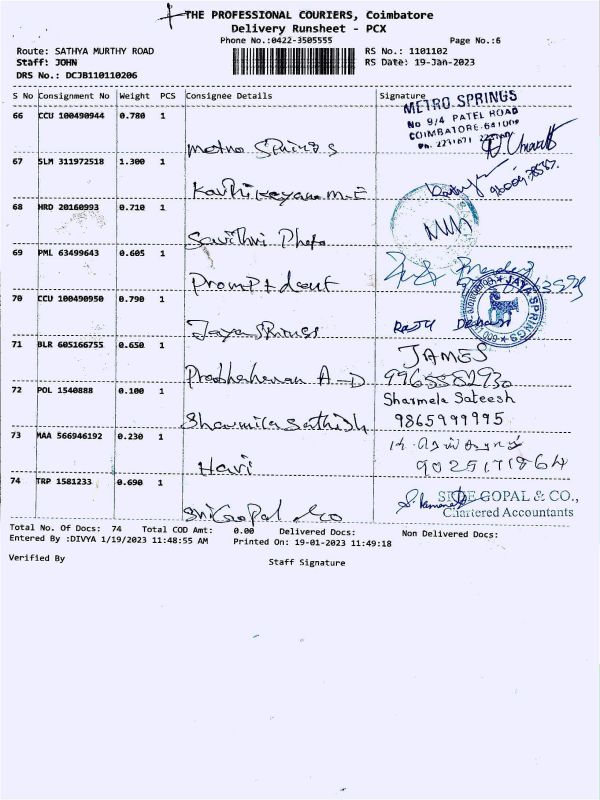 THE PROFESSIONAL COURIERS, Coimbatore
Delivery Runsheet - PCX
Phone No.:0422-3505555
Page No.:6
Route: SATHYA MURTHY ROAD
RS No.: 1101102
Staff: JOHN
RS Date: 19-Jan-2023
DRS No.: DCJB110110206
S No Consignment No Weight PCS Consignee Details Signature
METRO SPRINGS
No 9/4 PATEL ROAD
COIMBATORE-641009
66 CCU 100490944 0.780 1
Metro Springs
67 SLM 311972518 1.300 1
Karthikeyan M.E
68 HRD 20160993 0.710 1
Savithri Photo
69 PML 63499643 0.605 1
Prompt dent
70 CCU 100490950 0.790 1
JAYA SPRINGS
Jaya Springs
71 BLR 605166755 0.650 1
JAMES
Prabhaharan A-D 9965582930
72 POL 1540888 0.100 1
Sharmela Sateesh
Sharmila Sathish 9865999995
73 MAA 566946192 0.230 1
Hari 9025171864
74 TRP 1581233 0.690 1
GOPAL & CO.,
Chartered Accountants
Sri Gopal &co
Total No. Of Docs: 74 Total COD Amt: 0.00 Delivered Docs: Non Delivered Docs:
Entered By :DIVYA 1/19/2023 11:48:55 AM Printed On: 19-01-2023 11:49:18
Verified By
Staff Signature